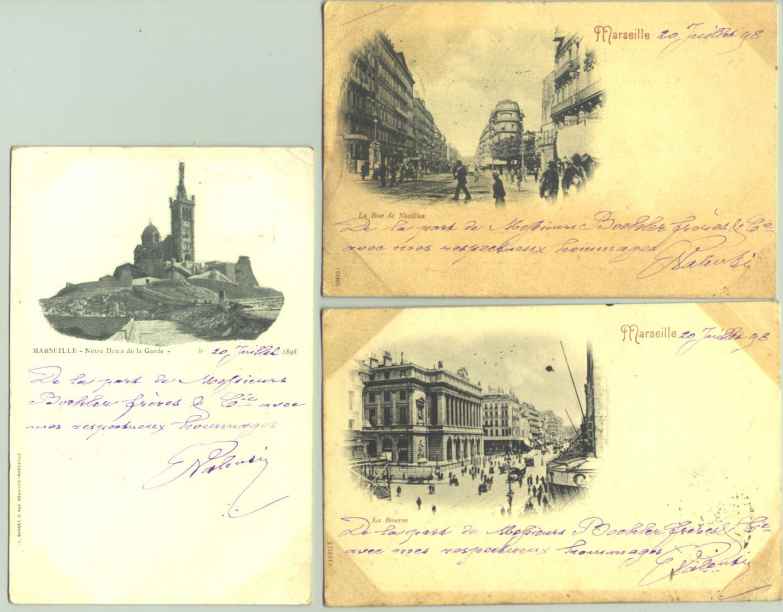 MARSEILLE - Notre Dame de la Garde -
le 20 Juillet 1898
De la part de Messieurs
Boehler frères & Cie avec
mes respectueux hommages
Valenti
Marseille 20 Juillet 98
La Rue de Noailles
De la part de Messieurs Boehler frères & Cie
avec mes respectueux hommages
Valenti
Marseille 20 Juillet 98
La Bourse
De la part de Messieurs Boehler frères & Cie
avec mes respectueux hommages
Valenti